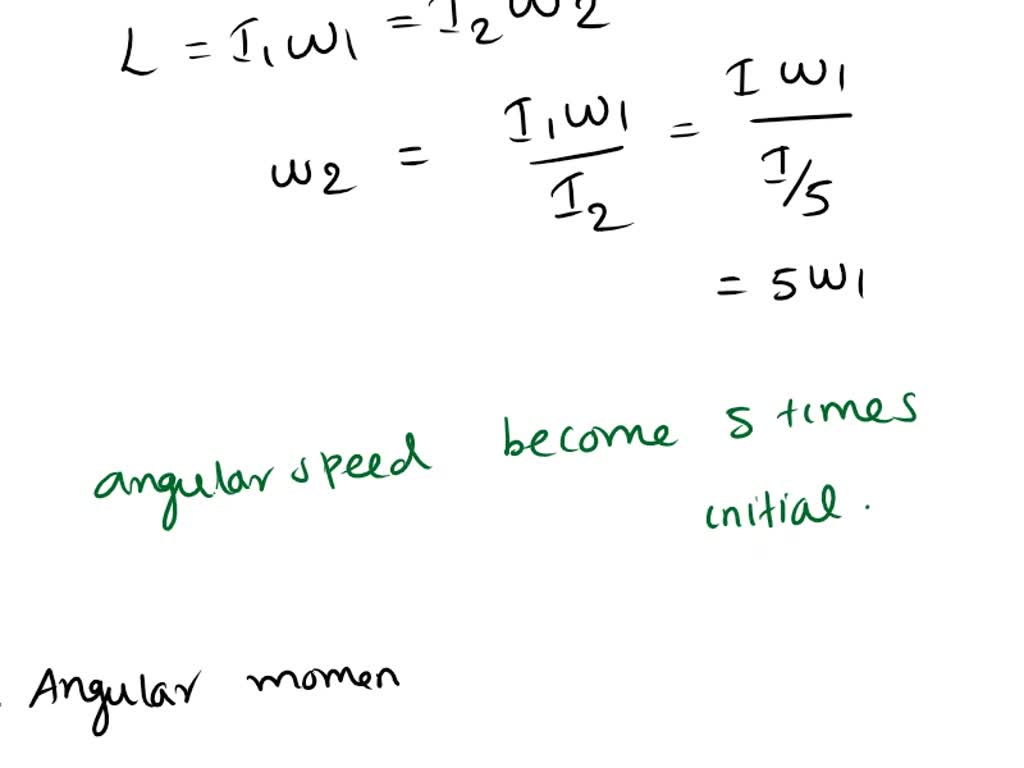 L = I₁ω₁ = I₂ω₂
ω₂ = I₁ω₁/I₂ = Iω₁/I/5
= 5ω₁
angular speed become 5 times
initial.
Angular momen